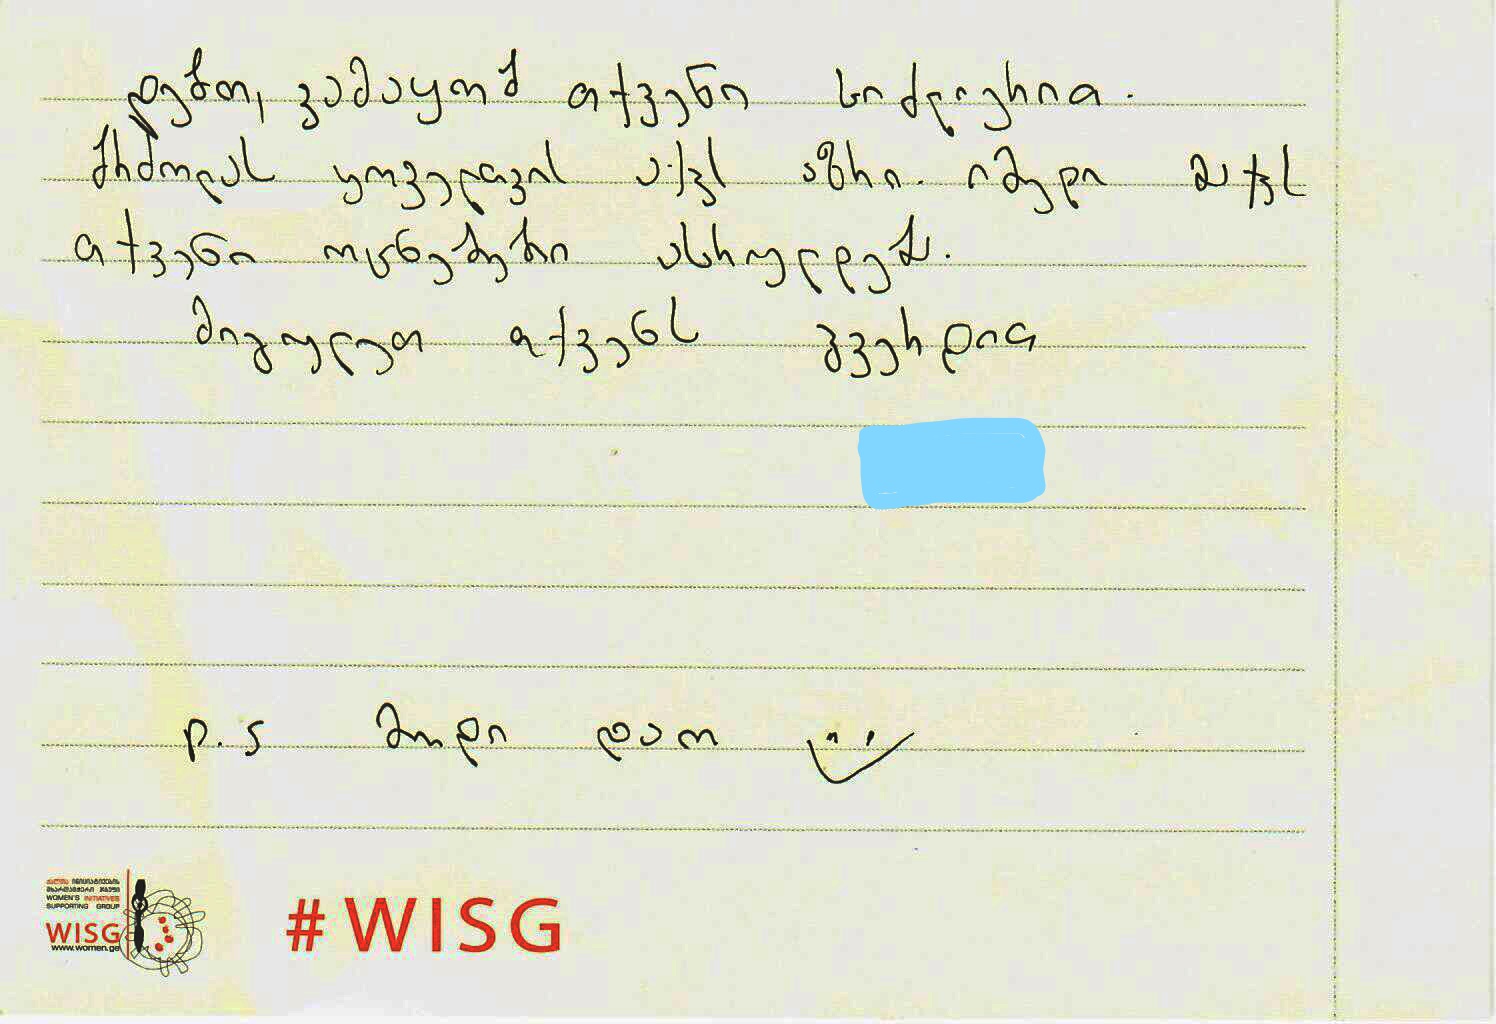 დებო, ვამაყობ თქვენი სიძლიერით.
ბრძოლას ყოველთვის აქვს აზრი. იმედი მაქვს
თქვენი ოცნებები ასრულდება.
მიგულეთ თქვენს გვერდით
p.s მოდი დაო
ქალთა ინიციატივების
მხარდამჭერი ჯგუფი
WOMEN'S INITIATIVES
SUPPORTING GROUP
WISG
www.women.ge
#WISG